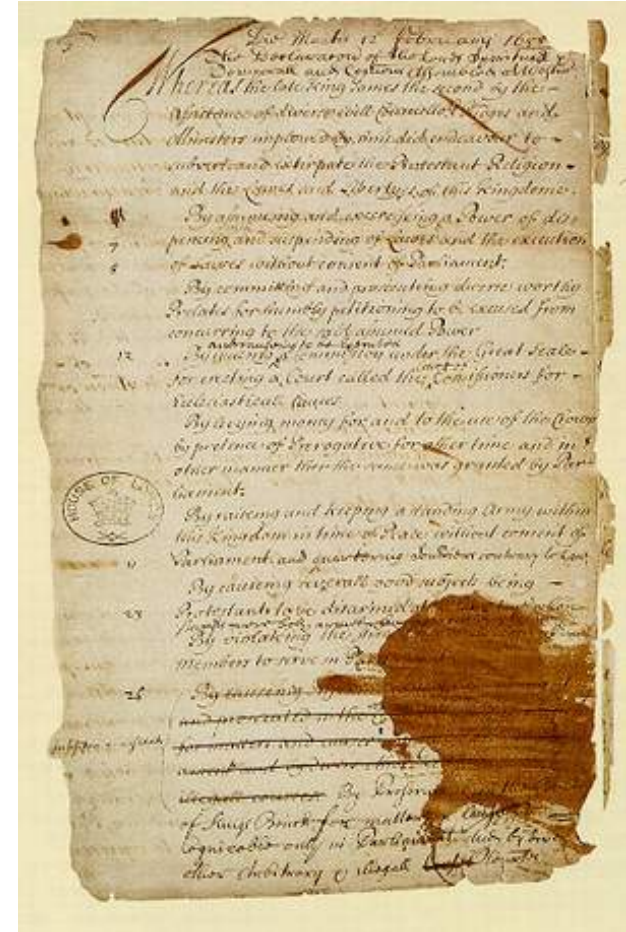 Die Martis 12 February 1688
The Declaration of the Lords Spirituall &
Temporall and Com̄ons Assembled at Westm̄r
Whereas the late King James the second by the
Assistance of diverse evill Councellors Judges and
Ministers imployed by him did endeavour to
subvert and extirpate the Protestant Religion
and the Lawes and Libertyes of this Kingdome.
By assuming and exerciseing a Power of dis
pencing and suspending of Lawes and the execution
7
of Lawes without consent of Parliament;
8
By committing and prosecuting diverse worthy
Prelates for humbly petitioning to be excused from
concurring to the said assumed Power
and causing to be executed
12
By issueing a Com̄ission under the Great Seale
for erecting a Court called the Court of Com̄issioners for
Ecclesiasticall Causes
By levying money for and to the use of the Crowne
by pretence of Prerogative for other time and in
other manner then the same was granted by Par
liament;
HOUSE OF LORDS
By raiseing and keeping a standing Army within
this Kingdom in time of Peace without consent of
Parliament and quartering Souldiers contrary to Law
By causeing severall good subjects being
Protestants to be disarmed at
23
By violating the
members to serve in
25
By causeing
and prosecuted in the
for matters and causes
illegall courses By
of Kings Bench for matters & Causes
Cognizable only in Parliament and by divers
other Arbitrary & illegall Courses